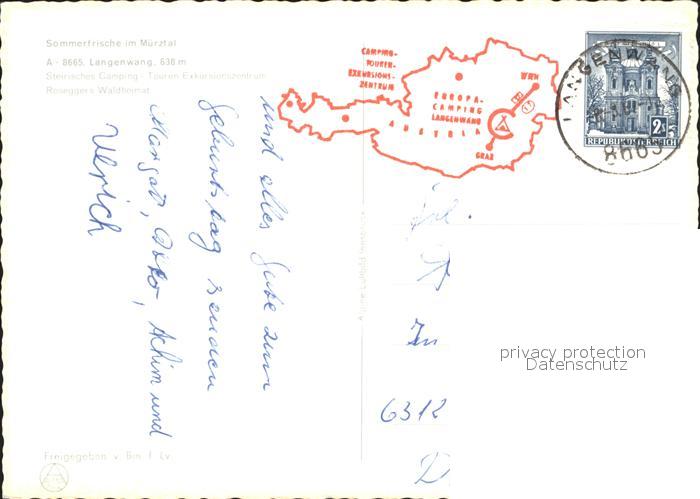 Sommerfrische im Mürztal
A - 8665, Langenwang, 638 m
Steirisches Camping - Touren Exkursionszentrum
Roseggers Waldheimat
CAMPING-
TOUREN-
EXKURSIONS-
ZENTRUM
WIEN
EUROPA-
CAMPING
LANGENWANG
AUSTRIA
GRAZ
LANGENWANG
8665
2.-
S
REPUBLIK ÖSTERREICH
und alles Gute zum
Geburtstag senden
Margot, Achim und
Ulrich
In
6312
privacy protection
Datenschutz
Freigegeben v. Bm. f. Lv.